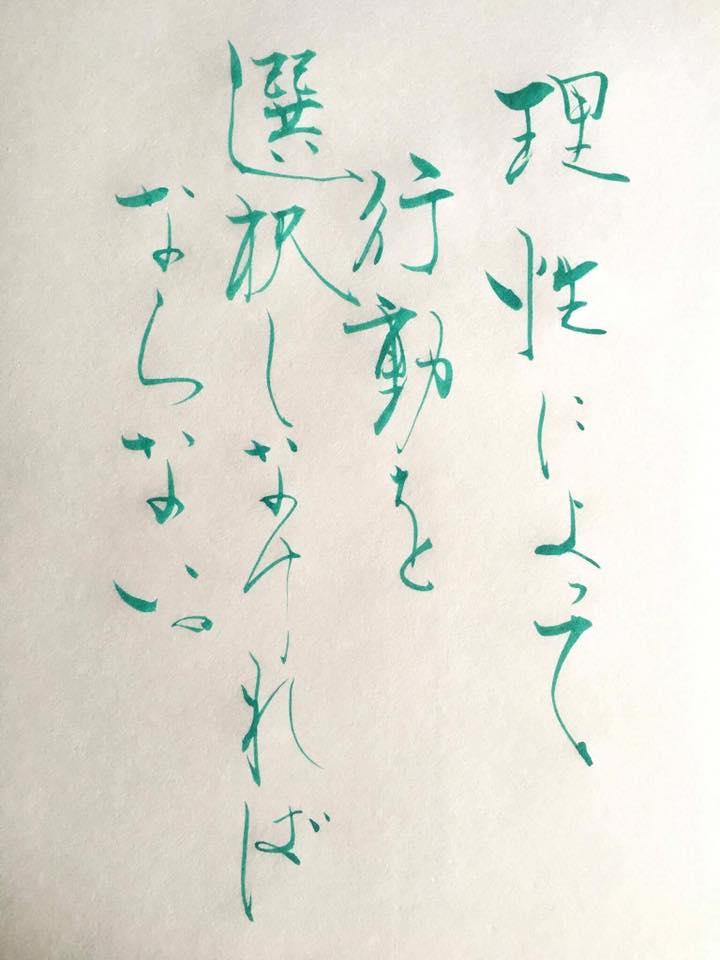 理性によって
行動を
選択しなければ
ならない。